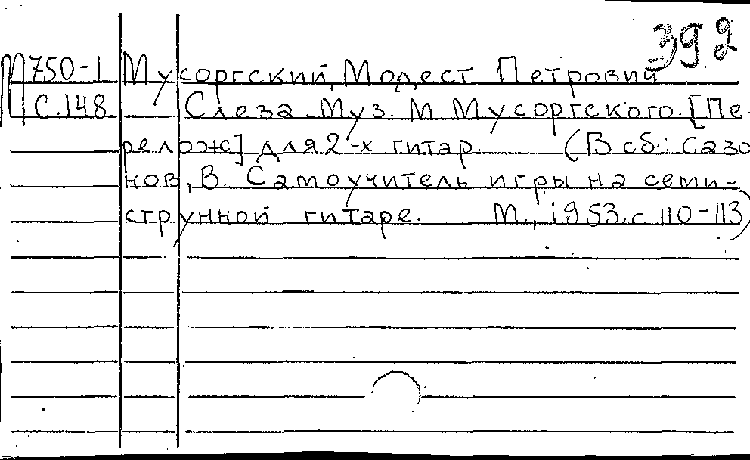 392
М750-1 Мусоргский, Модест Петрович
с.148 Слеза. Муз. М. Мусоргского. [Пе-
релож] для 2-х гитар. (В сб: Сазо
нов, В. Самоучитель игры на семи-
струнной гитаре. М., 1953. с 110-113)